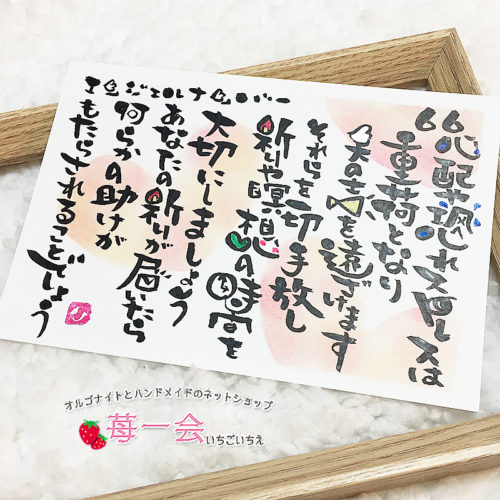 エンジェルナンバー
66 心配や恐れストレスは
重荷となり
天の声を遠ざけます
それらを一切手放し
祈りや瞑想の時間を
大切にしましょう
あなたの祈りが届いたら
何らかの助けが
もたらされることでしょう
オルゴナイトとハンドメイドのネットショップ
苺一会いちごいちえ